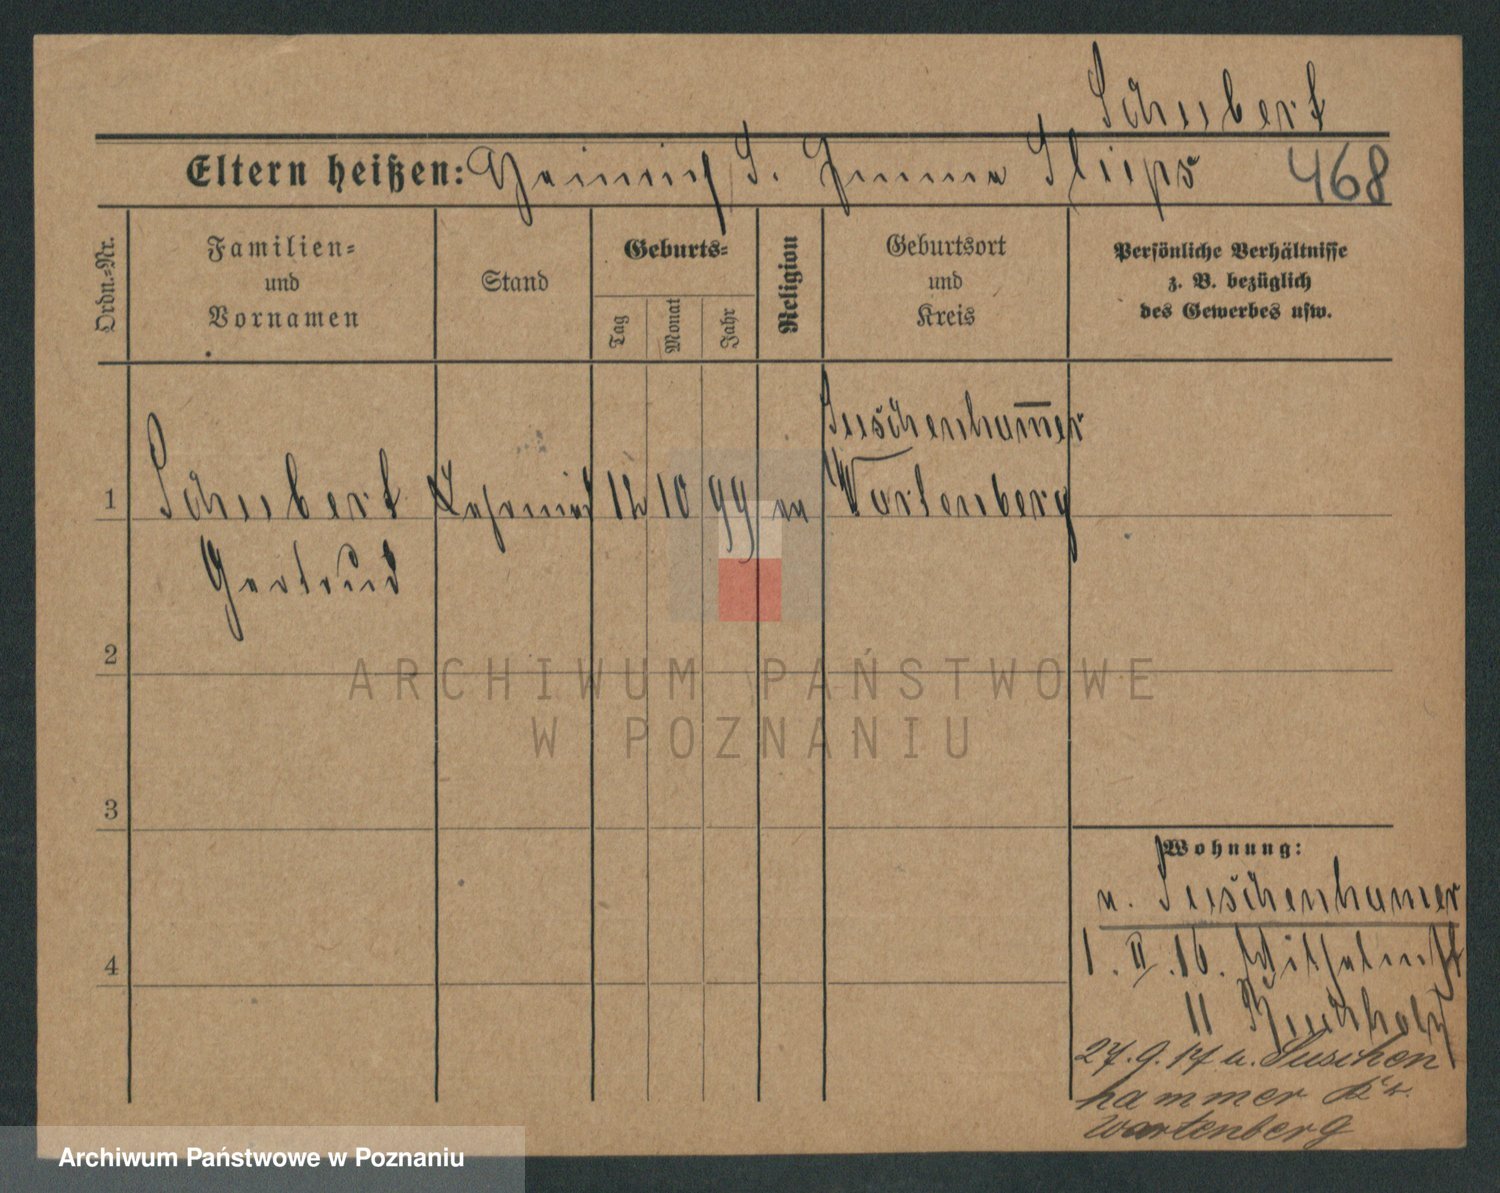 Schubert
Eltern heißen: Heinrich S. Emma
468
Ordn.-Nr.
Familien-
und
Vornamen
Stand
Geburts-
Tag
Monat
Jahr
Religion
Geburtsort
und
Kreis
Persönliche Verhältnisse
z. B. bezüglich
des Gewerbes usw.
Suschenham̅er
1 Schubert 12 10 99 ev Wartenberg
Gertrud
2
3
4
Wohnung:
n. Suschenhamer
1. II. 16. Wilhelmstr
11 Buchholz
27.9.17 n. Suschen
hammer
Wartenberg
ARCHIWUM PAŃSTWOWE
W POZNANIU
Archiwum Państwowe w Poznaniu